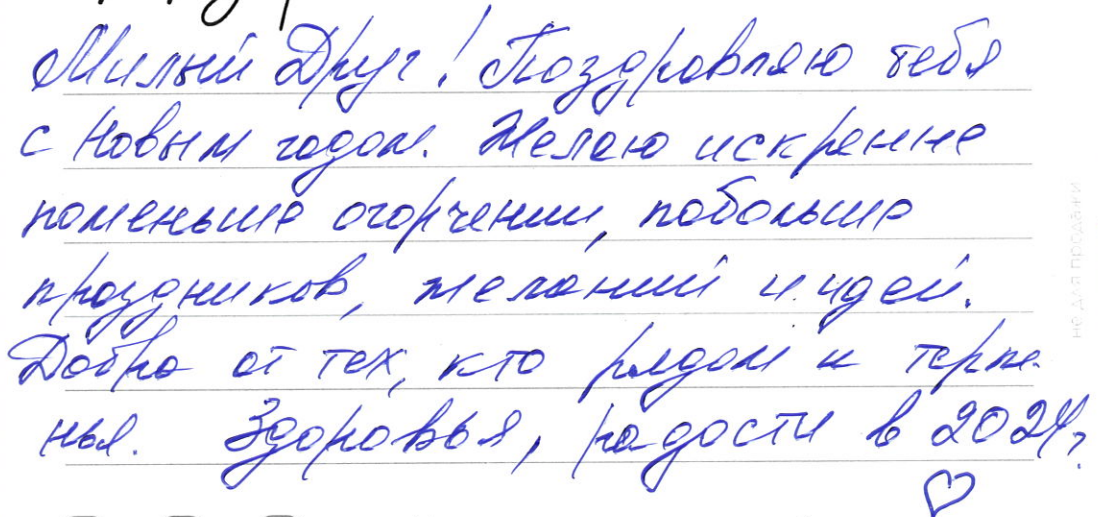 Милый Друг! Поздравляю тебя
с Новым годом. Желаю искренне
поменьше огорчений, побольше
праздников, желаний и идей.
Добра от тех, кто рядом и терпе-
нья. Здоровья, радости в 2024г
не для продажи